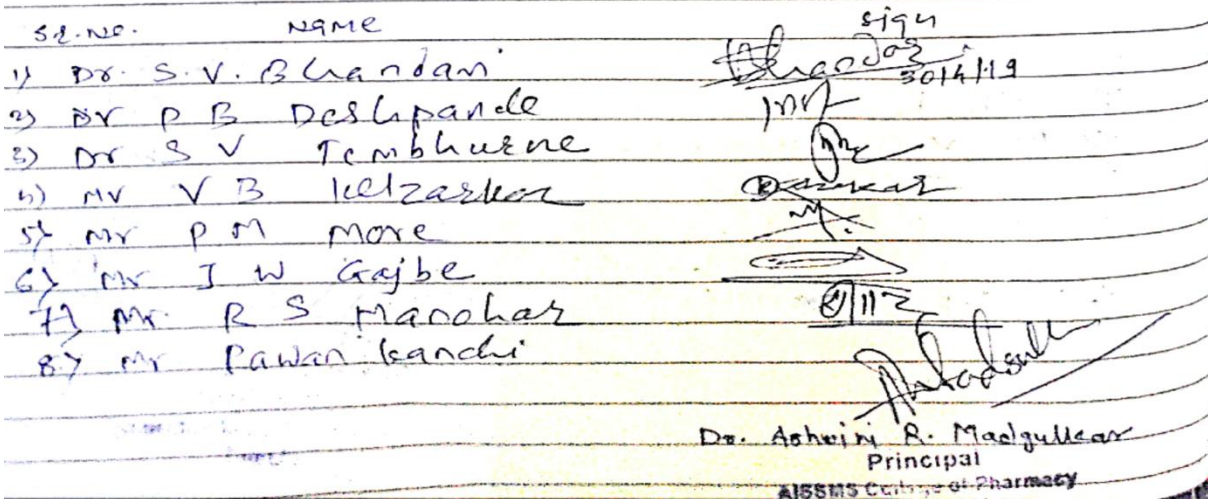 Sr.No. Name sign
1) Dr. S. V. Bhandari Bhandari
30/4/19
2) Dr P B Deshpande
3) Dr S V Tembhurne
4) Mr V B Kelzarkar
5) Mr P M More
6) Mr J W Gajbe
7) Mr. R S Manohar
8) Mr Pawan Kanchi
Dr. Ashwini R. Madgulkar
Principal
AISSMS College of Pharmacy